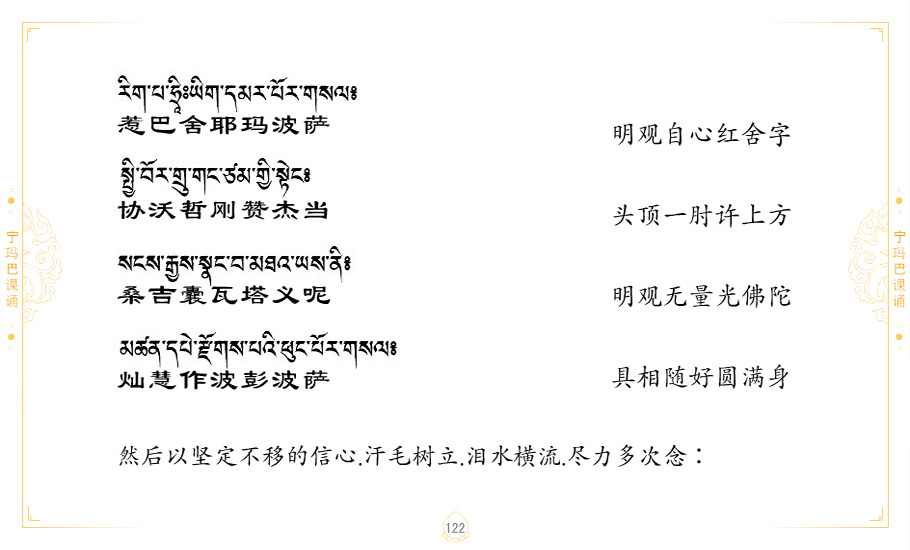 རིག་པ་ཧྲཱིཿཡིག་དམར་པོར་གསལ༔
惹巴舍耶玛波萨
明观自心红舍字
སྤྱི་བོར་གྲུ་གང་ཙམ་གྱི་སྟེང༔
协沃哲刚赞杰当
头顶一肘许上方
སངས་རྒྱས་སྣང་བ་མཐའ་ཡས་ནི༔
桑吉囊瓦塔义呢
明观无量光佛陀
མཚན་དཔེ་རྫོགས་པའི་ཕུང་པོར་གསལ༔
灿慧作波彭波萨
具相随好圆满身
然后以坚定不移的信心.汗毛树立.泪水横流.尽力多次念：
宁玛巴课诵
宁玛巴课诵
122